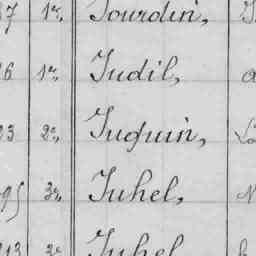 57 1re, Jourdin,
26 1re, Judil, a
23 2e, Juguin,
295 3e, Juhel, N
213 3e Juhel